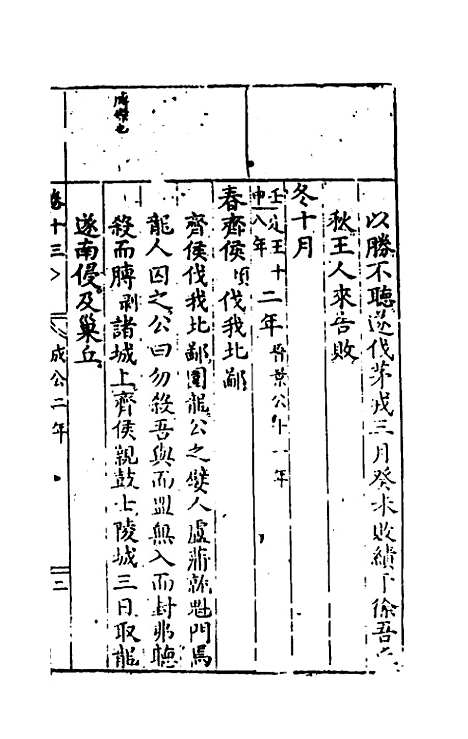 以勝不聽遂伐茅戎三月癸未敗績于徐吾氏
秋王人來告敗
冬十月
壬申定王十八年二年晉景公十一年
春齊侯頃伐我北鄙
齊侯伐我北鄙圍龍頃公之嬖人盧蒲就魁門焉
龍人囚之公曰勿殺吾與而盟無入而封弗聽
殺而膊剥諸城上齊侯親鼓士陵城三日取龍
遂南侵及巢丘
卷十三
成公二年
二